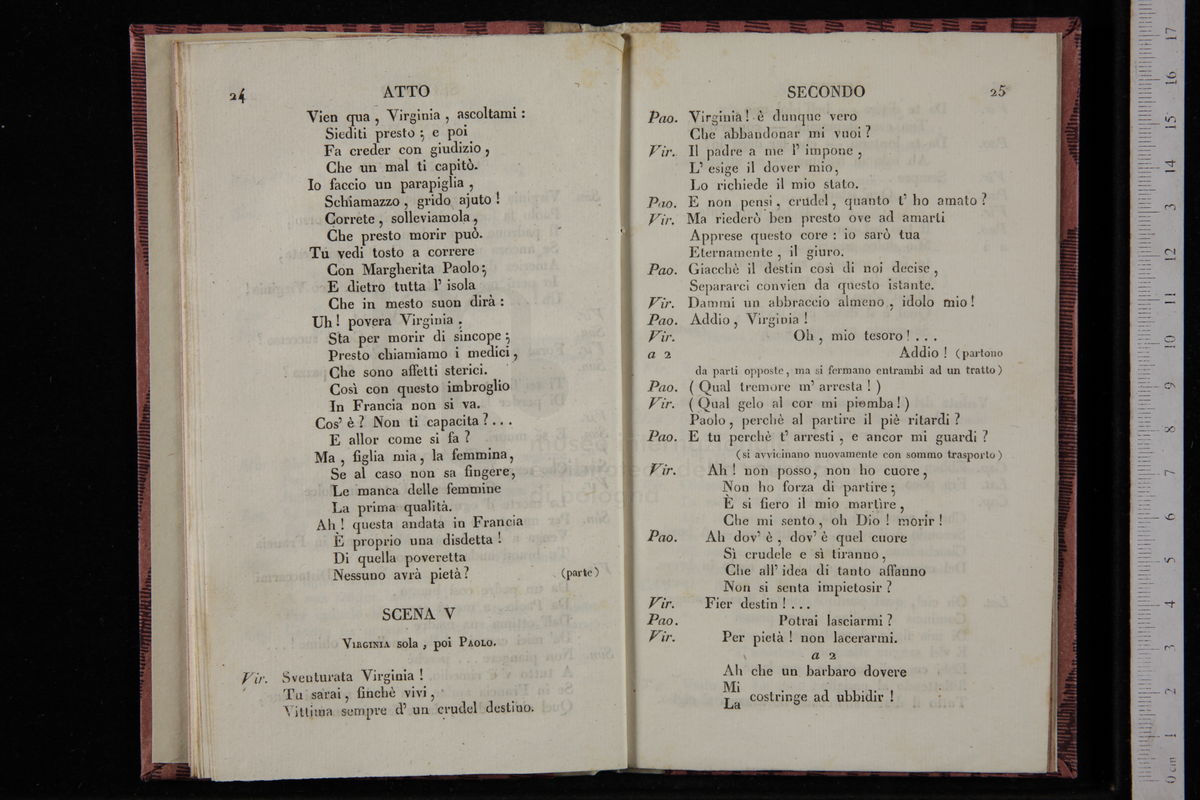 24 ATTO
Vien qua, Virginia, ascoltami:
Siediti presto; e poi
Fa creder con giudizio,
Che un mal ti capitò.
Io faccio un parapiglia,
Schiamazzo, grido ajuto!
Correte, solleviamola,
Che presto morir può.
Tu vedi tosto a correre
Con Margherita Paolo;
E dietro tutta l' isola
Che in mesto suon dirà:
Uh! povera Virginia.
Sta per morir di sincope;
Presto chiamiamo i medici,
Che sono affetti sterici.
Così con questo imbroglio
In Francia non si va.
Cos' è? Non ti capacita?...
E allor come si fa?
Ma, figlia mia, la femmina,
Se al caso non sa fingere,
Le manca delle femmine
La prima qualità.
Ah! questa andata in Francia
È proprio una disdetta!
Di quella poveretta
Nessuno avrà pietà? (parte)
SCENA V
VIRGINIA sola, poi PAOLO.
Vir. Sventurata Virginia!
Tu sarai, finchè vivi,
Vittima sempre d' un crudel destino.
SECONDO 25
Pao. Virginia! è dunque vero
Che abbandonar mi vuoi?
Vir. Il padre a me l' impone,
L' esige il dover mio,
Lo richiede il mio stato.
Pao. E non pensi, crudel, quanto t' ho amato?
Vir. Ma riederò ben presto ove ad amarti
Apprese questo core: io sarò tua
Eternamente, il giuro.
Pao. Giacchè il destin così di noi decise,
Separarci convien da questo istante.
Vir. Dammi un abbraccio almeno, idolo mio!
Pao. Addio, Virginia!
Vir. Oh, mio tesoro!...
a 2 Addio! (partono
da parti opposte, ma si fermano entrambi ad un tratto)
Pao. (Qual tremore m' arresta!)
Vir. (Qual gelo al cor mi piomba!)
Paolo, perchè al partire il piè ritardi?
Pao. E tu perchè t' arresti, e ancor mi guardi?
(si avvicinano nuovamente con sommo trasporto)
Vir. Ah! non posso, non ho cuore,
Non ho forza di partire;
È si fiero il mio martìre,
Che mi sento, oh Dio! morir!
Pao. Ah dov' è, dov' è quel cuore
Sì crudele e sì tiranno,
Che all' idea di tanto affanno
Non si senta impietosir?
Vir. Fier destin!...
Pao. Potrai lasciarmi?
Vir. Per pietà! non lacerarmi.
a 2
Ah che un barbaro dovere
Mi
La costringe ad ubbidir!
0 cm 1 2 3 4 5 6 7 8 9 10 11 12 13 14 15 16 17